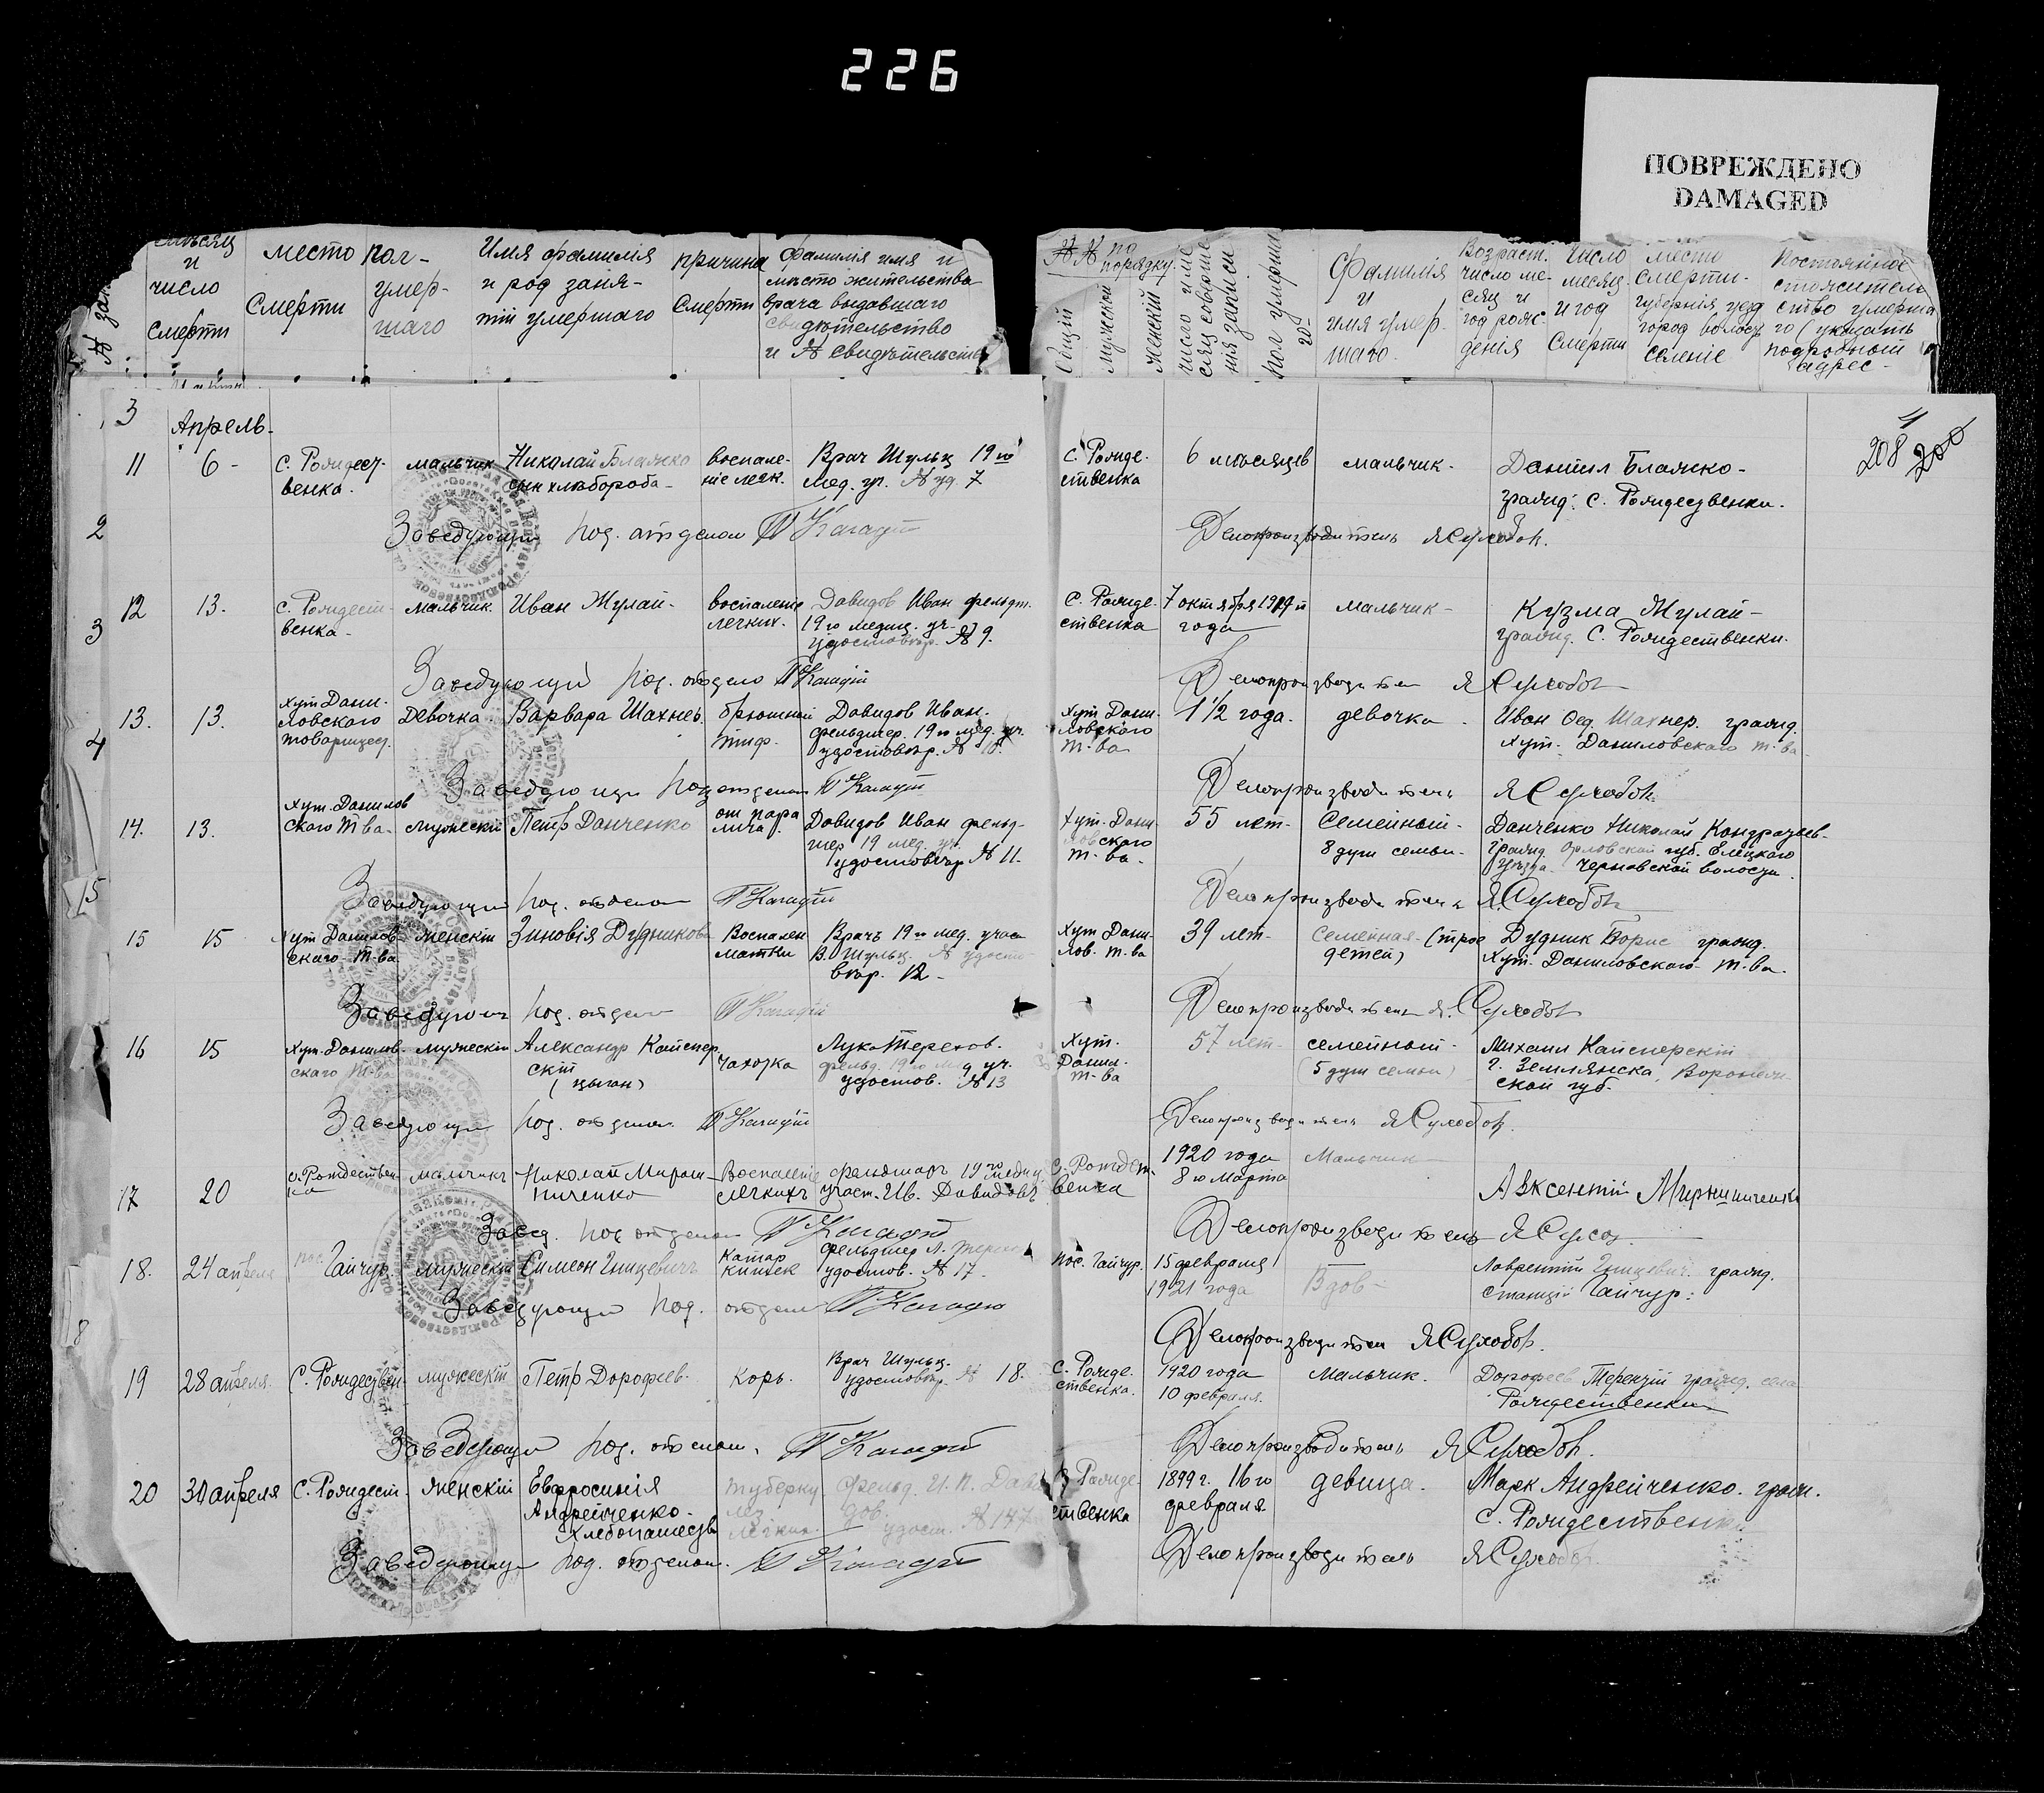 226
ПОВРЕЖДЕНО
DAMAGED
месяц и число смерти
место смерти
пол умершаго
Имя фамилія и род заня-тій умершаго
причина смерти
Фамилія имя и место жительства врача выдавшаго свидѣтельство и № свидѣтельства
№ № по порядку.
Общій
мужской
женскій
Фамилія и имя умер-шаго.
Возраст. число ме-сяц и год рож-денія
Число месяц и год смерти
место смерти- губернія уезд город волость селеніе
Постоянное умерша го (указать подробный адрес-
3
Апрель-
4
208
200
11 6- с. Рождест-венка. мальчик Николай Блажко сын хлебороба- воспале-ніе легк. Врач Шульц 19го мед. уч. № уд. 7
с. Рожде-ственка 6 месяцев мальчик- Даниил Блажко- гражд. с. Рождественки.
2
Заведующий под. отделом
Делопроизводитель
12 13. с. Рождест-венка- мальчик Иван Жулай- воспаленіе легких. Давидов Иван фельдш. 19го медиц. уч. удостовѣр. № 9.
с. Рожде-ственка 7 октября 1919 года мальчик- Кузма Жулай- гражд. с. Рождественки.
3
Заведующий под. отдело
Делопроизводител
13. 13. хут. Дани-ловского товарищест. Девочка Варвара Шахнер. брюшной тиф. Давидов Иван. фельдшер. 19го мед. уч. удостовѣр. №
хут. Дани-ловского т-ва 1 1/2 года. девочка. Иван Фед. Шахнер. гражд. хут. Даниловскаго т-ва
4
Заведующи под отделом
Делопроизводитель
14. 13. хут. Данилов скаго т-ва- мужескій Петр Данченко от пара лича Давидов Иван фельд-шер 19 мед. уч. удостовѣр № 11.
хут. Дани-ловского т-ва. 55 лет- Семейный- 8 душ семьи- Данченко Николай Кондратьев- гражд. Орловской губ. Елецкаго уезда. Черновской волости.
15
Заведующий под. отделом
Делопроизводитель
15 15 хут Данилов-скаго т-ва женскій Зиновія Дудникова Воспален матки Врачъ 19го мед. участ В. Шульц. № удосто-вѣр. 12-
хут Дани-лов. т-ва 39 лет- Семейная- (трое детей) Дудник Борис гражд. хут. Даниловскаго т-ва.
Заведующ под. отдел
Делопроизводител
16 15 хут. Данилов-скаго т-ва мужескій Александр Кайспер скій (цыган) чахотка Лука Терехов. фельд. 19го мед уч. удостов. № 13
хут. Данил-т-ва 57 лет- семейный- (5 душ семьи) Михаил Кайсперскій г. Землянска, Воронеж-ской губ.
Заведующи под. отделом
Делопроизводитель
17 20 с. Рождествен ка мальчикъ Николай Мирош-ниченко Воспаленіе легкихъ фельдшаръ 19го медиц участ. Ив. Давидовъ
с. Рождест-венка 1920 года 8го марта Мальчик- Авксентій Мирошниченко
Завед. под отделом
Делопроизводитель
18. 24 апреля пос. Гайчур. мужескій Симеон Гницевичъ Катар кишек фельдшер Л. удостов. № 17.
пос. Гайчур. 15 февраля 1921 года Вдов- Лаврентій Гницевич. гражд. станціи Гайчур.
8
Заведующи под. отделом
Делопроизводител
19 28 апреля. с. Рождествен мужескій Петр Дорофеев. Корь. Врач Шульц. удостовѣр. № 18.
с. Рожде-ственка. 1920 года 10 февраля. Мальчик. Дорофеев Терентій гражд. села Рождественки
Заведующи под. отделом.
Делопроизводитель
20 30 апреля с. Рождест. женскій Евфросинія Андрейченко- хлебопашеств туберку лез легких. Фельд. И. П. Дави дов. удост. № 147
с Рожде-ственка 1899 г. 16го февраля девица. Марк Андрейченко. граж. с. Рождествен
Заведующи под. отделом.
Делопроизводитель